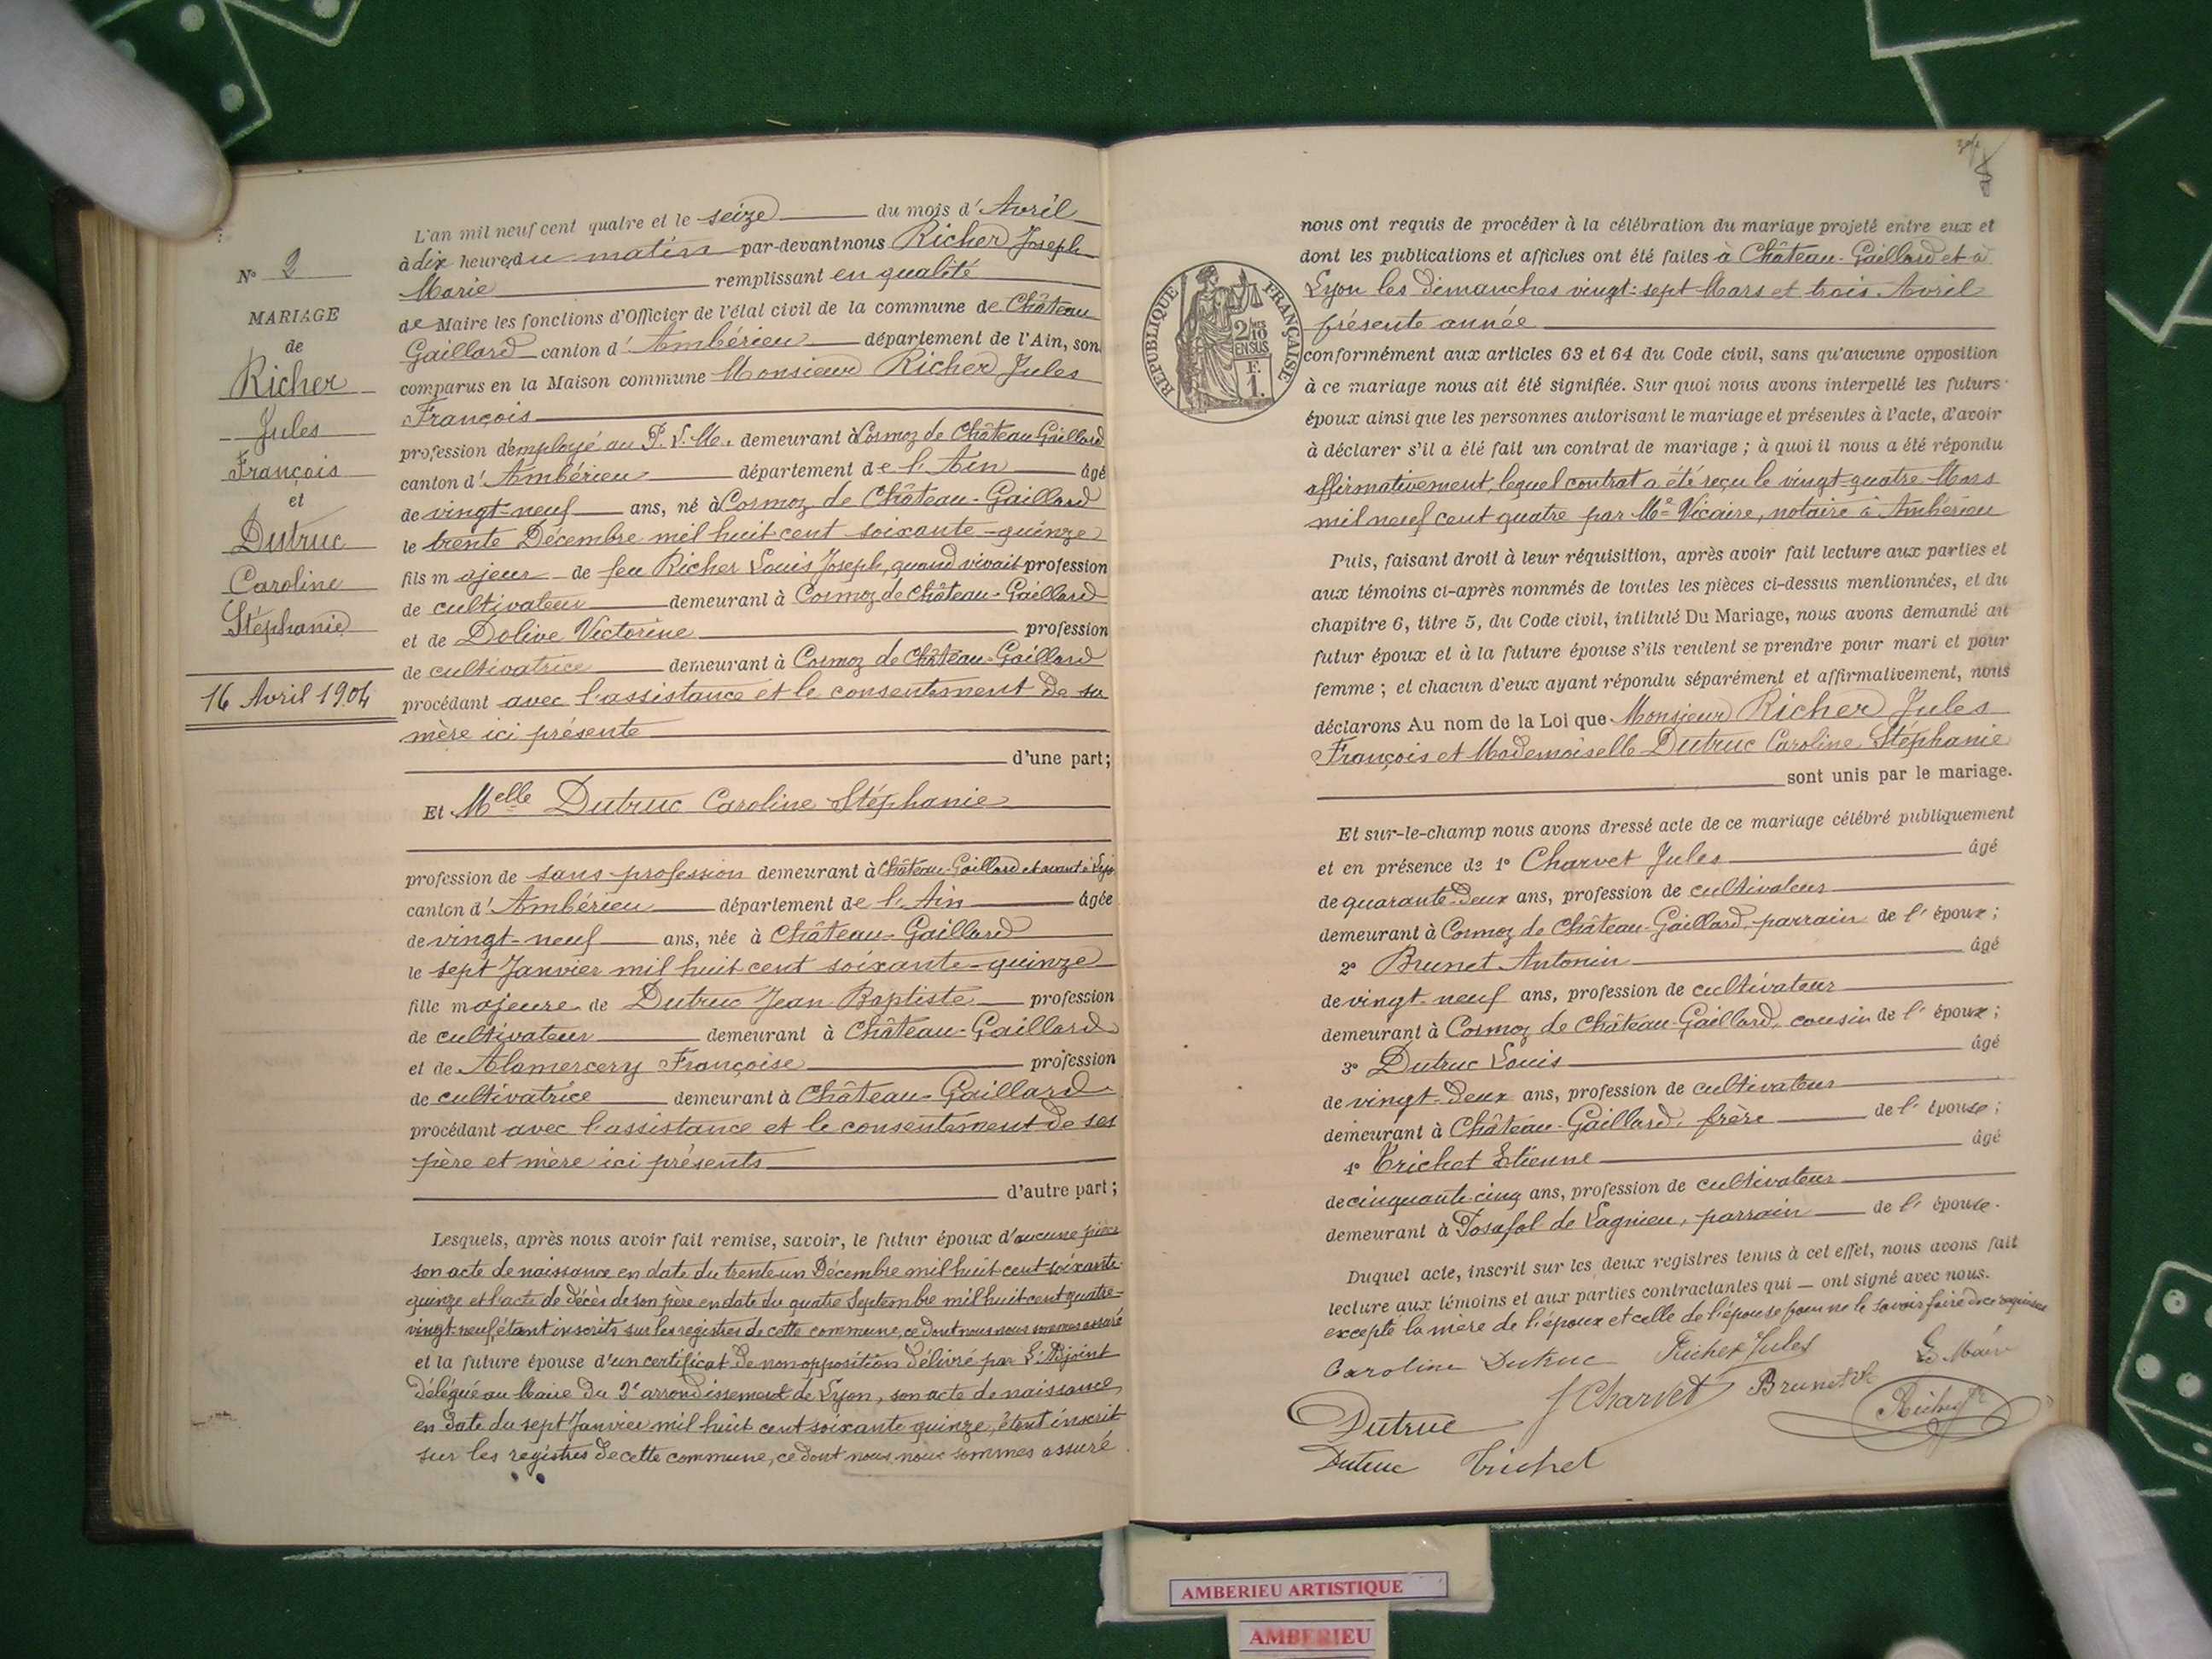 N° 2
MARIAGE
de
Richer
Jules
François
et
Dutruc
Caroline
Stéphanie
16 Avril 1904
L'an mil neuf cent quatre et le seize du mois d'Avril
à dix heures du matin par-devant nous Richer Joseph
Marie remplissant en qualité
de Maire les fonctions d'Officier de l'état civil de la commune de Château
Gaillard canton d'Ambérieu département de l'Ain, son
comparus en la Maison commune Monsieur Richer Jules
François
profession d'employé au P. L. M. demeurant à Cormoz de Château Gaillard
canton d'Ambérieu département de l'Ain âgé
de vingt-neuf ans, né à Cormoz de Château-Gaillard
le trente Décembre mil huit cent soixante-quinze
fils majeur de feu Richer Louis Joseph, quand vivait profession
de cultivateur demeurant à Cormoz de Château-Gaillard
et de Dolive Victorine profession
de cultivatrice demeurant à Cormoz de Château-Gaillard
procédant avec l'assistance et le consentement de sa
mère ici présente
d'une part;
Et Melle Dutruc Caroline Stéphanie
profession de sans profession demeurant à Château-Gaillard et avant à Lyon
canton d'Ambérieu département de l'Ain âgée
de vingt-neuf ans, née à Château-Gaillard
le sept Janvier mil huit cent soixante-quinze
fille majeure de Dutruc Jean Baptiste profession
de cultivateur demeurant à Château-Gaillard
et de Alamercery Françoise profession
de cultivatrice demeurant à Château-Gaillard
procédant avec l'assistance et le consentement de ses
père et mère ici présents
d'autre part;
Lesquels, après nous avoir fait remise, savoir, le futur époux d'aucune pièce
son acte de naissance en date du trente un Décembre mil huit cent soixante-
quinze et l'acte de décès de son père en date du quatre Septembre mil huit cent quatre-
vingt-neuf, étant inscrits sur les registres de cette commune, ce dont nous nous sommes assuré
et la future épouse d'un certificat de non opposition délivré par L'Adjoint
délégué au Maire du 2e arrondissement de Lyon, son acte de naissance
en date du sept Janvier mil huit cent soixante quinze, étant inscrit
sur les registres de cette commune, ce dont nous nous sommes assuré
REPUBLIQUE FRANÇAISE
2/10 EN SUS
F. 1.
nous ont requis de procéder à la célébration du mariage projeté entre eux et
dont les publications et affiches ont été faites à Château-Gaillard et à
Lyon les dimanches vingt-sept Mars et trois Avril
présente année
conformément aux articles 63 et 64 du Code civil, sans qu'aucune opposition
à ce mariage nous ait été signifiée. Sur quoi nous avons interpellé les futurs
époux ainsi que les personnes autorisant le mariage et présentes à l'acte, d'avoir
à déclarer s'il a été fait un contrat de mariage ; à quoi il nous a été répondu
affirmativement, lequel contrat a été reçu le vingt-quatre Mars
mil neuf cent quatre par Me Vicaire, notaire à Ambérieu
Puis, faisant droit à leur réquisition, après avoir fait lecture aux parties et
aux témoins ci-après nommés de toutes les pièces ci-dessus mentionnées, et du
chapitre 6, titre 5, du Code civil, intitulé Du Mariage, nous avons demandé au
futur époux et à la future épouse s'ils veulent se prendre pour mari et pour
femme ; et chacun d'eux ayant répondu séparément et affirmativement, nous
déclarons Au nom de la Loi que Monsieur Richer Jules
François et Mademoiselle Dutruc Caroline Stéphanie
sont unis par le mariage.
Et sur-le-champ nous avons dressé acte de ce mariage célébré publiquement
et en présence de 1° Charvet Jules âgé
de quarante-deux ans, profession de cultivateur
demeurant à Cormoz de Château-Gaillard, parrain de l'époux ;
2° Brunet Antonin âgé
de vingt-neuf ans, profession de cultivateur
demeurant à Cormoz de Château-Gaillard, cousin de l'époux ;
3° Dutruc Louis âgé
de vingt-deux ans, profession de cultivateur
demeurant à Château-Gaillard, frère de l'épouse ;
4° Trichet Etienne âgé
de cinquante-cinq ans, profession de cultivateur
demeurant à Posafol de Lagnieu, parrain de l'épouse.
Duquel acte, inscrit sur les deux registres tenus à cet effet, nous avons fait
lecture aux témoins et aux parties contractantes qui — ont signé avec nous.
excepté la mère de l'époux et celle de l'épouse pour ne le savoir faire de ce requises
Caroline Dutruc Richer Jules Le Maire
J Charvet Brunet
Dutruc Richer
Dutruc Trichet
AMBERIEU ARTISTIQUE
AMBERIEU